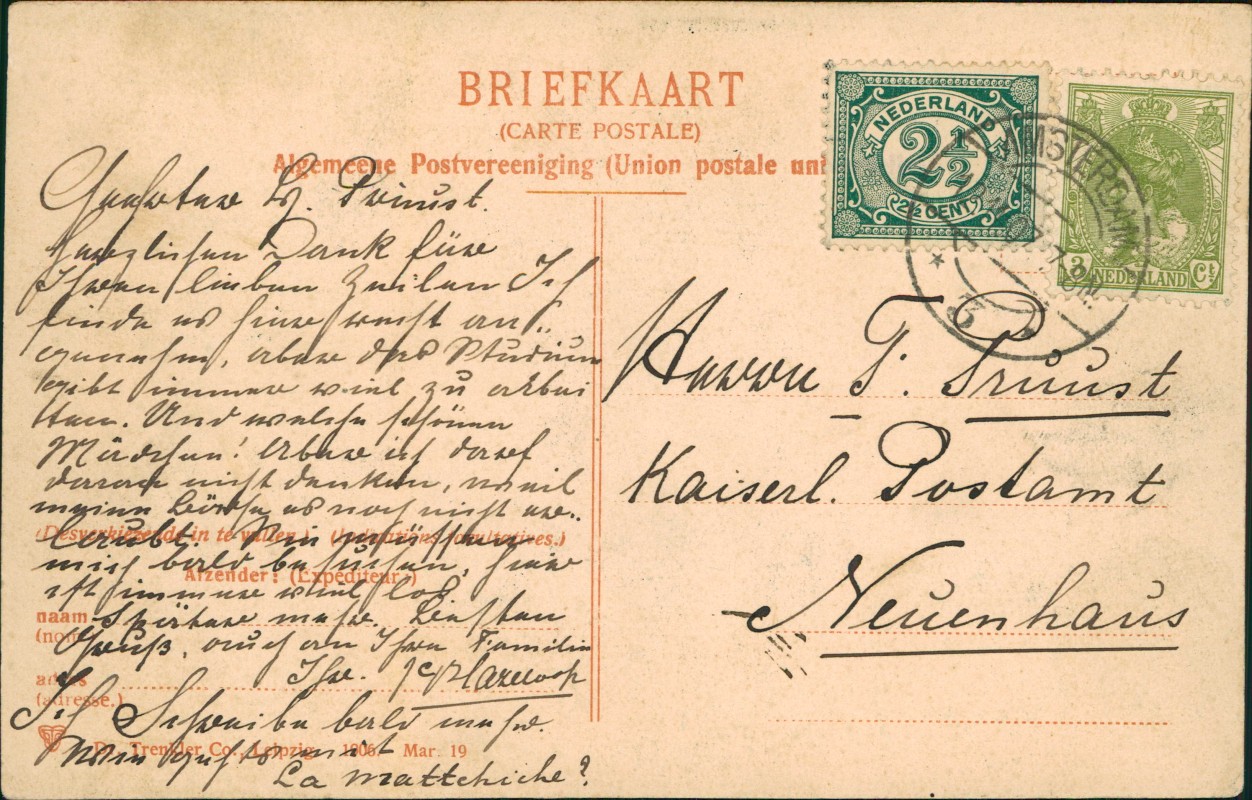 BRIEFKAART
(CARTE POSTALE)
Algemeene Postvereeniging (Union postale uni
NEDERLAND
2½
2½ CENT
AMSTERDAM
3 Ct
NEDERLAND
Geehrter H. Prüust.
Herzlichen Dank für
Ihren lieben Zeilen Ich
finde es hier recht an
genehm, aber das Studium
gibt immer viel zu arbei
ten. Und welche schönen
Mädchen! Aber ich darf
daran nicht denken, weil
meine Börse es noch nicht er..
laubt. Sie müssen
mich bald besuchen, hier
ist immer viel los
Später mehr. Besten
Gruß, auch an Ihre Familie
Ihr.
Ich Schreibe bald mehr.
Wie geht es mit
La mattchiche?
(Desverkiezende in te vullen.) (Indications facultatives.)
Afzender: (Expéditeur:)
naam
(nom
adres
(adresse.)
Dr. Trenkler Co., Leipzig. 1906. Mar. 19
Herrn T. Prüust
Kaiserl. Postamt
Neuenhaus